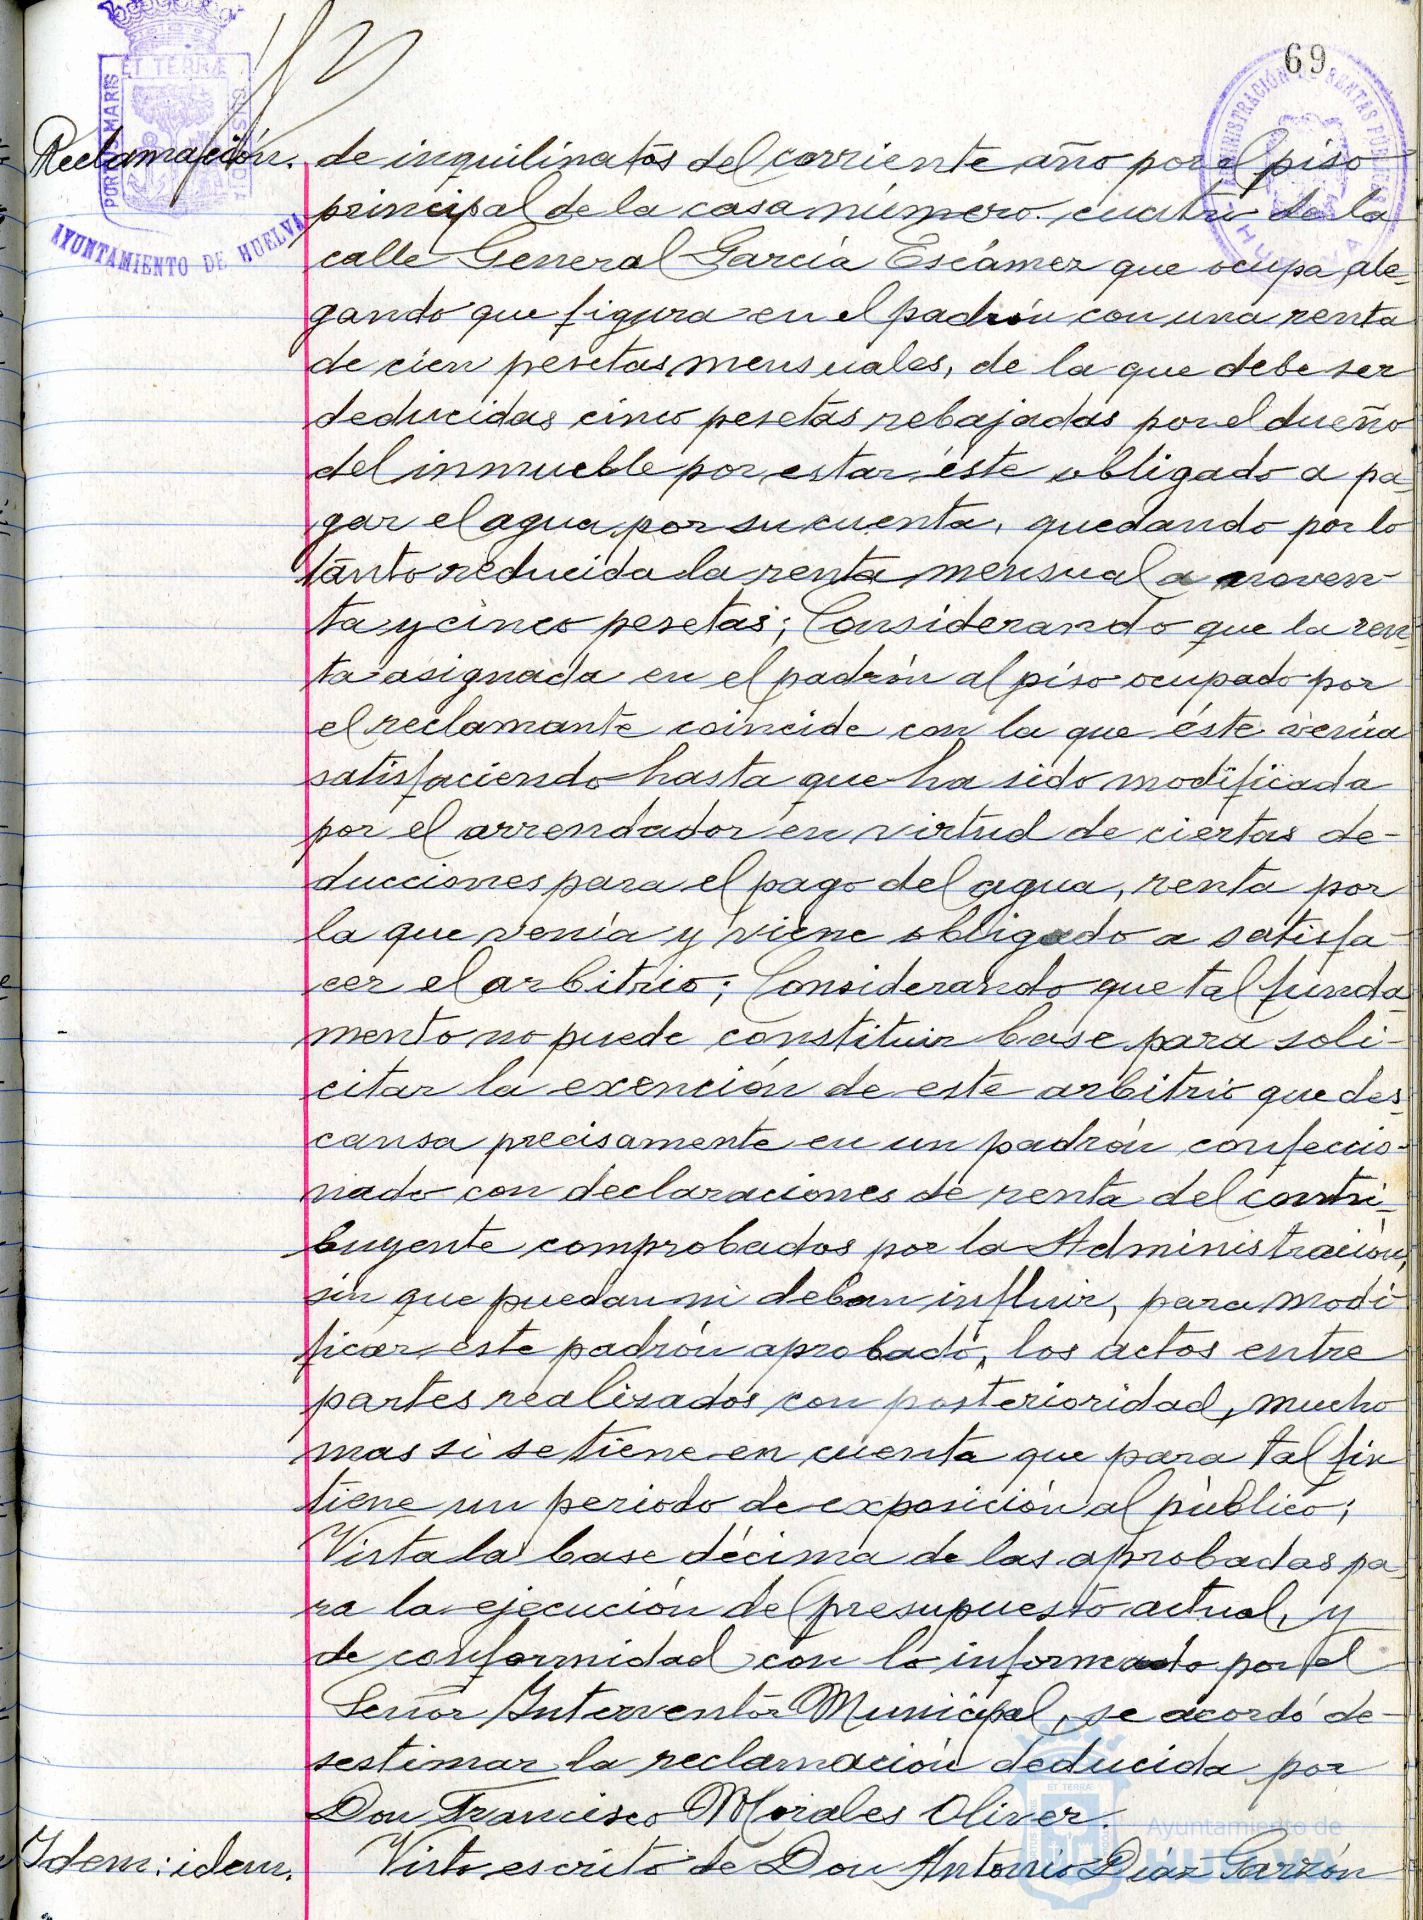 69
ET TERRÆ
PORTUS MARIS
CUSTODIA
AYUNTAMIENTO DE HUELVA
ADMINISTRACIÓN DE RENTAS PÚBLICAS
HUELVA
Reclamación. de inquilinatos del corriente año por el piso
principal de la casa número cuatro de la
calle General García Escámez que ocupa, ale-
gando que figura en el padrón con una renta
de cien pesetas mensuales, de la que debe ser
deducidas cinco pesetas rebajadas por el dueño
del inmueble por estar éste obligado a pa-
gar el agua por su cuenta, quedando por lo
tanto reducida la renta mensual a noven-
ta y cinco pesetas; Considerando que la ren-
ta asignada en el padrón al piso ocupado por
el reclamante coincide con la que éste venía
satisfaciendo hasta que ha sido modificada
por el arrendador en virtud de ciertas de-
ducciones para el pago del agua, renta por
la que venía y viene obligado a satisfa-
cer el arbitrio; Considerando que tal funda-
mento no puede constituir base para soli-
citar la exención de este arbitrio que des-
cansa precisamente en un padrón confeccio-
nado con declaraciones de renta del contri-
buyente comprobados por la Administración,
sin que puedan ni deban influir, para modi-
ficar este padrón aprobado, los actos entre
partes realizados con posterioridad, mucho
mas si se tiene en cuenta que para tal fin
tiene un periodo de exposición al público;
Vista la base décima de las aprobadas pa-
ra la ejecución del presupuesto actual, y
de conformidad con lo informado por el
Señor Interventor Municipal, se acordó de-
sestimar la reclamación deducida por
Don Francisco Morales Oliver.
Idem: idem. Visto escrito de Don Antonio Díaz Garzón
ET TERRÆ
Ayuntamiento de
HUELVA